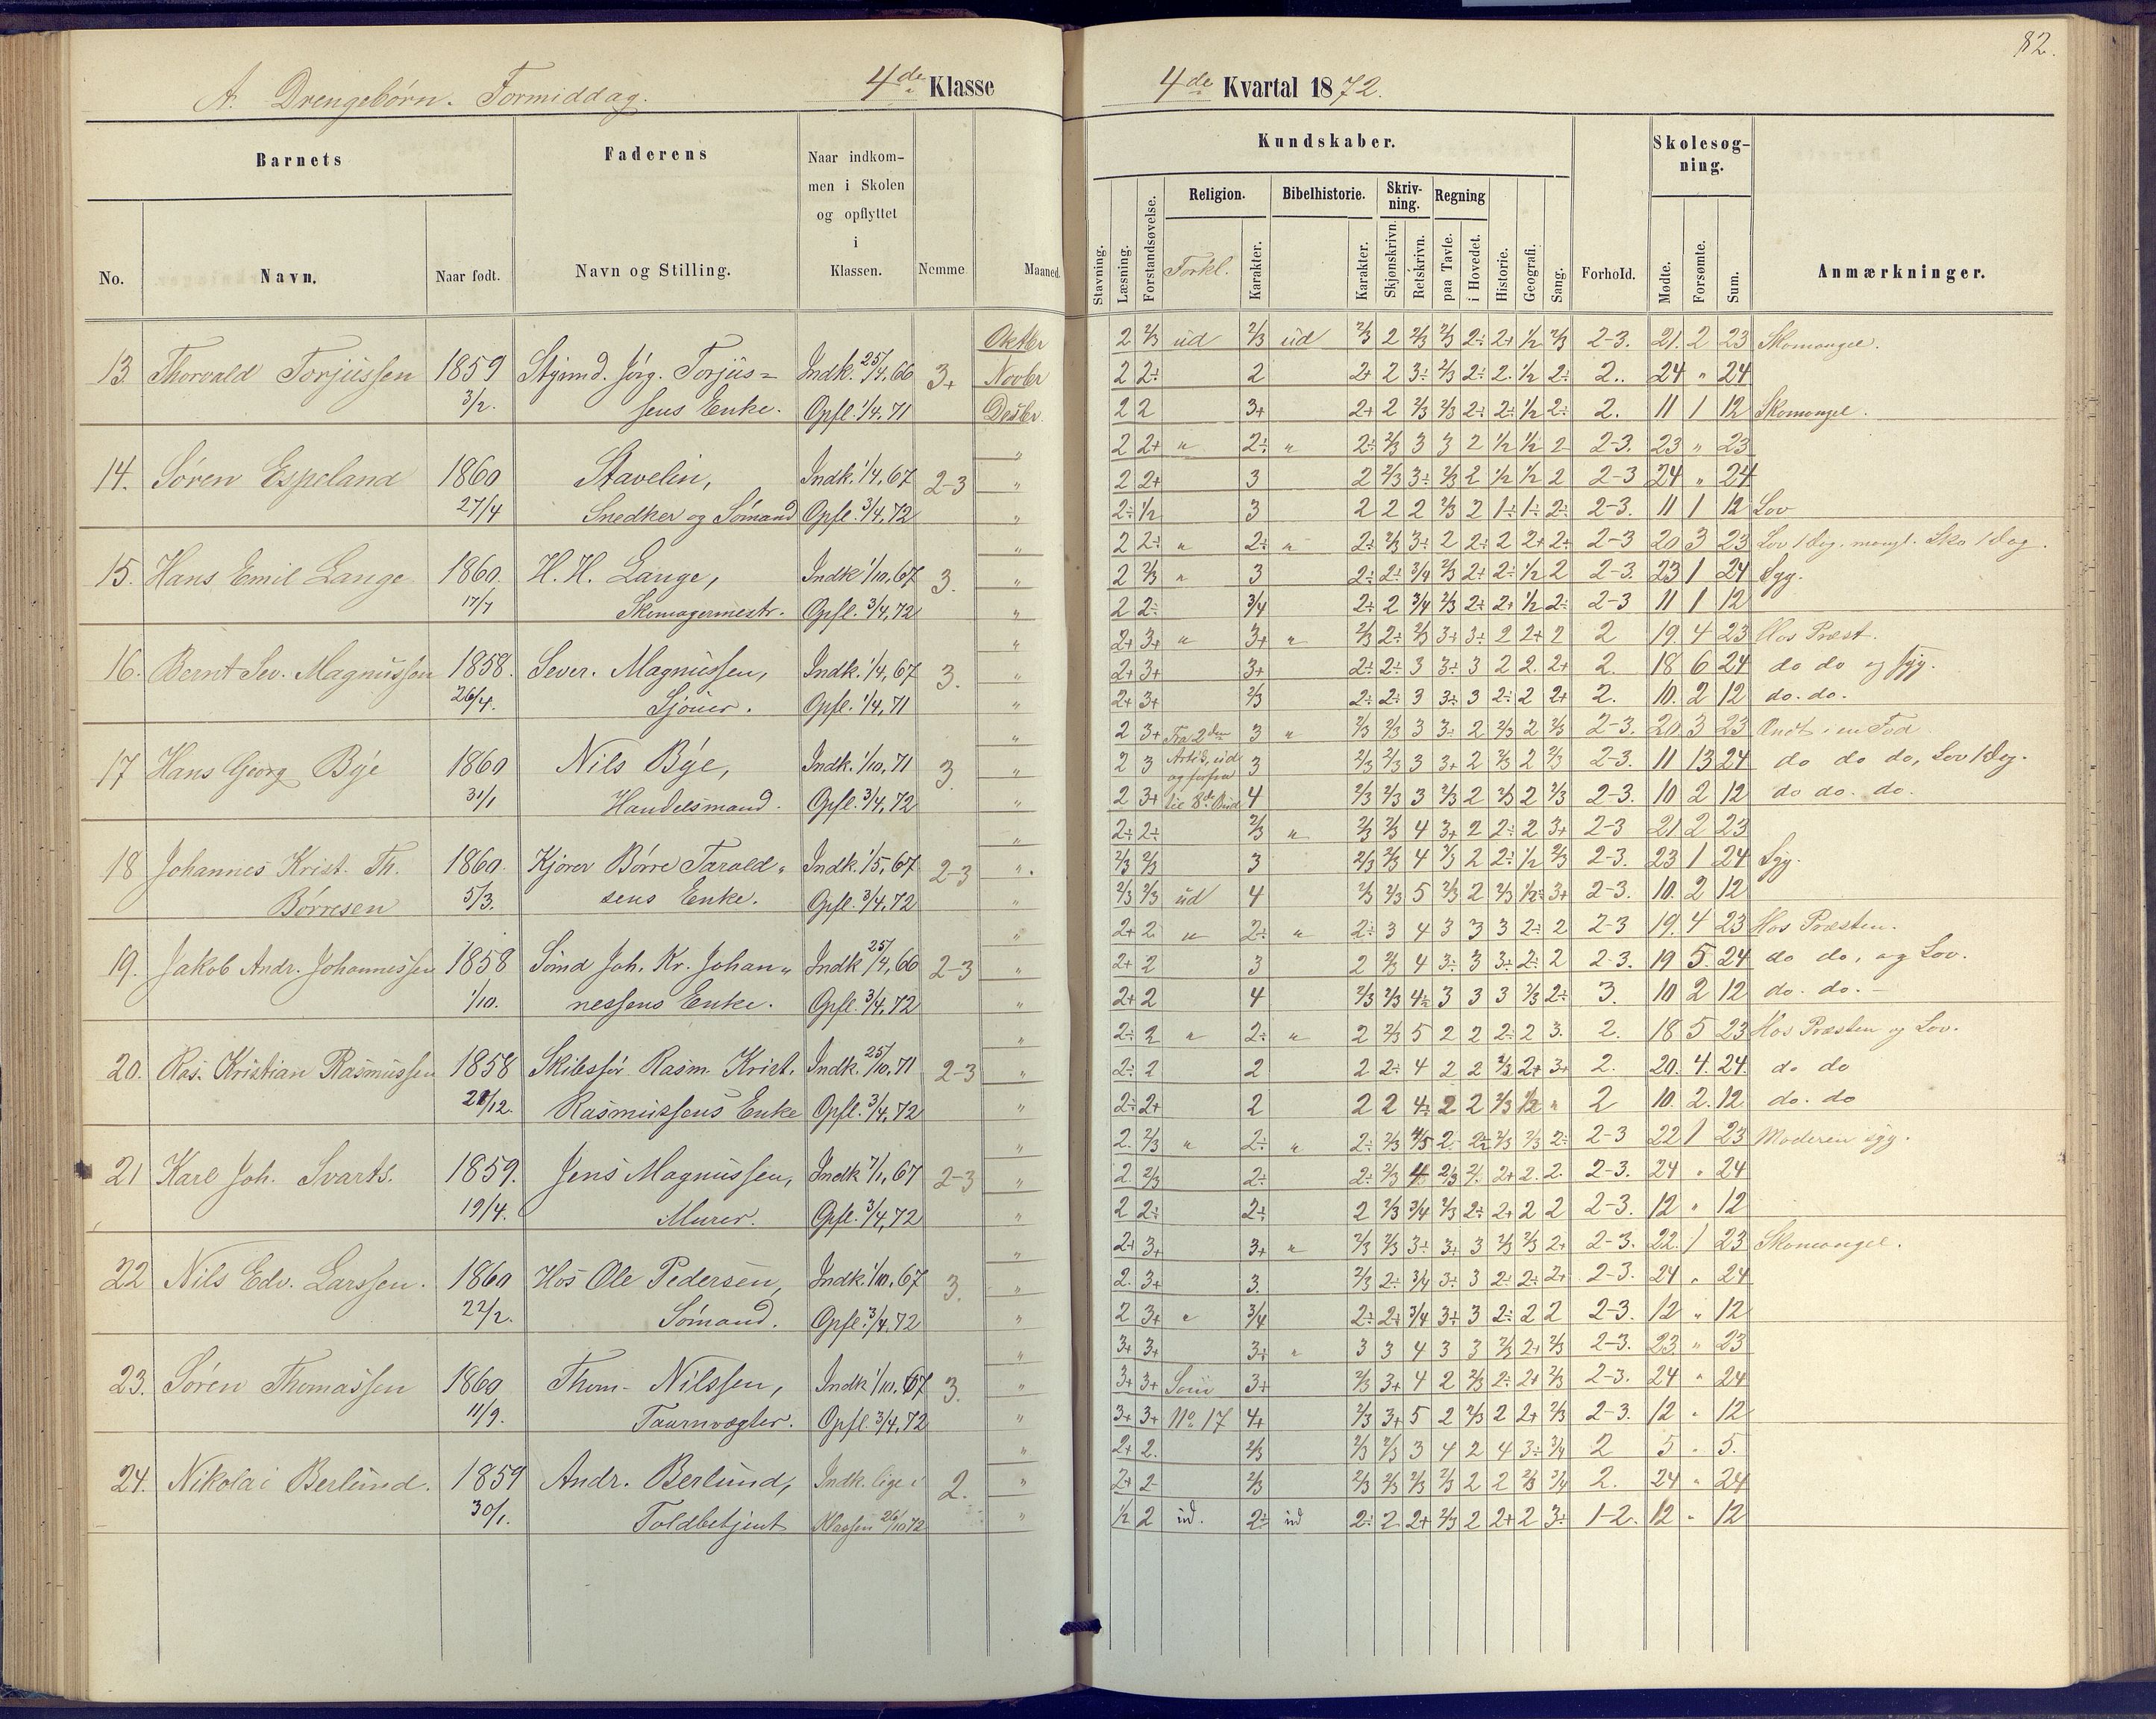 82.
A. Drengebørn. Formiddag.
4de Klasse
4de Kvartal 1872.
Barnets
Faderens
Naar indkom-
men i Skolen
og opflyttet
i
Klassen.
No.
Navn.
Naar født.
Navn og Stilling.
Nemme
Maaned.
Kundskaber.
Skolesøg-
ning.
Religion.
Bibelhistorie.
Skriv-
ning.
Regning
Stavning.
Læsning.
Forstandsøvelse.
Forkl.
Karakter.
Karakter.
Skjønskrivn.
Retskrivn.
paa Tavle.
i Hovedet.
Historie.
Geografi.
Sang.
Forhold.
Mødte.
Forsømte.
Sum.
Anmærkninger.
13. Thorvald Torjussen 1859 Styrmd. Jørg. Torjus= Indk. 25/4, 66 3+
3/2. sens Enke. Opfl. 1/4, 71
Oktbr
Novbr
Desbr.
14. Søren Espeland 1860 Stavelin, Indk. 1/4, 67 2-3
27/4 Snedker og Sømand Opfl. 3/4, 72
15. Hans Emil Lange 1860. H. H. Lange, Indk 1/10, 67 3.
17/7 Skomagermestr. Opfl. 3/4, 72
16. Bernt Sev. Magnussen 1858. Sever. Magnussen, Indk. 1/4, 67 3.
26/4. Sjouer. Opfl. 1/4, 71
17 Hans Georg Bye 1860 Nils Bye, Indk. 1/10, 71 3.
31/1 Handelsmand. Opfl. 3/4, 72
18 Johannes Krist. Th. 1860. Kjører Børre Tarald= Indk 1/5, 67 2-3
Børresen 5/3. sens Enke. Opfl. 3/4, 72
19. Jakob Andr. Johannessen 1858 Sømd Joh. Kr. Johan= Indk 25/4, 66 2-3
1/10. nessens Enke. Opfl. 3/4, 72
20. Ras. Kristian Rasmussen 1858 Skibsfør. Rasm. Krist. Indk. 25/10, 71 2-3
21/12. Rasmussens Enke Opfl. 3/4, 72
21 Karl Joh. Svarts. 1859. Jens Magnussen, Indk 7/1, 67 2-3
19/4. Murer. Opfl. 3/4, 72
22 Nils Edv. Larssen. 1860 Hos Ole Pedersen, Indk. 1/10, 67 3.
22/2. Sømand. Opfl. 3/4, 72
23. Søren Thomassen 1860 Thom. Nilssen, Indk 1/10, 67 3.
11/9. Taarnvægter. Opfl. 3/4, 72
24. Nikolai Berlund. 1859 Andr. Berlund, Indk. lige i 2.
30/1. Toldbetjent Klassen 26/10 72
2 2/3 ud 2/3 ud 2/3 2 2/3 2/3 2÷ 2+ 1/2 2/3 2-3. 21. 2 23 Skomangel.
2 2÷ 2 2+ 2 3÷ 2/3 2÷ 2. 1/2 2÷ 2.. 24 " 24
2 2 3+ 2+ 2 2/3 2/3 2÷ 2÷ 1/2 2÷ 2. 11 1 12 Skomangel.
2 2+ " 2÷ " 2÷ 2/3 3 3 2 1/2 1/2 2 2-3. 23 " 23
2 2+ 3 2 2/3 3÷ 2/3 2 1/2 1/2 2 2-3 24 " 24
2÷ 1/2 3 2 2 2 2/3 2 1÷ 1÷ 2÷ 2-3. 11 1 12 Lov
2 2÷ " 2÷ " 2÷ 2/3 3÷ 2 2÷ 2 2+ 2+ 2-3 20 3 23 Lov 1 dag. mangl. Sko 1 dag.
2 2/3 " 3 2÷ 2÷ 3/4 2/3 2+ 2÷ 1/2 2 2-3. 23 1 24 Syg.
2 2÷ 3/4 2÷ 2 3/4 2/3 2÷ 2+ 1/2 2÷ 2-3 11 1 12
2+ 3+ " 3+ " 2/3 2÷ 2/3 3÷ 3÷ 2 2+ 2 2 19. 4 23 Hos Præst.
2+ 3+ 3+ 2÷ 2÷ 3 3÷ 3 2 2. 2+ 2. 18 6 24 do do og syg.
2+ 3+ 2/3 2÷ 2÷ 3 3÷ 3 2÷ 2 2+ 2. 10. 2 12 do. do.
2 3+ Fra 2den 3 " 2/3 2/3 3 3÷ 2 2/3 2 2/3 2-3. 20 3 23 Ondt i en Fod
2 3 Artik. ud 3 2/3 2/3 3 3+ 2 2/3 2 2/3 2-3. 11 13 24 do do do, Lov 1 dag.
2 3+ til 8de Bud 4 2/3 2/3 3 2/3 2 2/3 2 2/3 2-3. 10 2 12 do do. do.
2÷ 2÷ 2/3 " 2/3 2/3 4 3+ 2 2÷ 2 3+ 2-3 21 2 23
2/3 2/3 3 2/3 2/3 4 2/3 2 2÷ 1/2 2/3 2-3. 23 1 24 Syg.
2/3 2/3 ud 4 2/3 2/3 5 2/3 2 2/3 1/2÷ 3+ 2-3. 10. 2 12
2+ 2 " 2÷ " 2÷ 3 4 3 3 3 2÷ 2 2-3 19. 4 23 Hos Præsten.
2+ 2 3 2 2/3 4 3÷ 3 3÷ 2÷ 2 2-3. 19 5. 24 do do, og Lov.
2+ 2 4 2/3 2/3 4÷ 3 3 3 2/3 2÷ 3. 10 2 12 do. do.
2÷ 2 " 2÷ " 2 2/3 5 2 2 2÷ 2 3. 2. 18 5 23 Hos Præsten og Lov.
2÷ 2 2 2 2÷ 4 2 2 2/3 2+ 3+ 2. 20. 4. 24 do do
2÷ 2+ 2 2 2 4÷ 2 2 2/3 1/2 " 2 10. 2. 12 do. do
2. 2/3 " 2÷ " 2÷ 2/3 4/5 2 2÷ 2/3 2/3 2÷ 2-3 22 1 23 Moderen syg.
2. 2/3 2÷ 2÷ 2/3 4 2/3 2. 2+ 2. 2. 2-3. 24 " 24
2 2÷ 2÷ 2 2/3 3/4 2/3 2÷ 2+ 2 2 2-3. 12 " 12
2+ 3+ 3+ " 2/3 2/3 3÷ 3÷ 3 2/3 2/3 2+ 2-3. 22. 1 23 Skomangel.
2. 3+ 3. 2/3 2÷ 3/4 3÷ 3 2÷ 2÷ 2+ 2-3. 24 " 24
2 3+ " 3/4 2÷ 2÷ 3/4 3÷ 3 2÷ 2 2 2-3. 12 " 12
3+ 3+ 3÷ " 3 3 4 3 3 2/3 2+ 2/3 2-3. 23 " 23
3+ 3+ Som 3+ 2/3 3+ 4 2 2/3 2÷ 2+ 2/3 2-3. 24 " 24
3+ 3+ No 17 4+ 2/3 3+ 5 2 2/3 2 2+ 2/3 2-3. 12 " 12
2+ 2. 2/3 2/3 2/3 3 4 2 4 3÷ 3/4 2 5 " 5.
2+ 2 2/3 2/3 2/3 2/3 2/3 2 2 2/3 3/4 2. 24 " 24
1/2 2 ud. 2÷ ud 2÷ 2 2+ 2/3 2 2+ 2 3÷ 1-2. 12 " 12